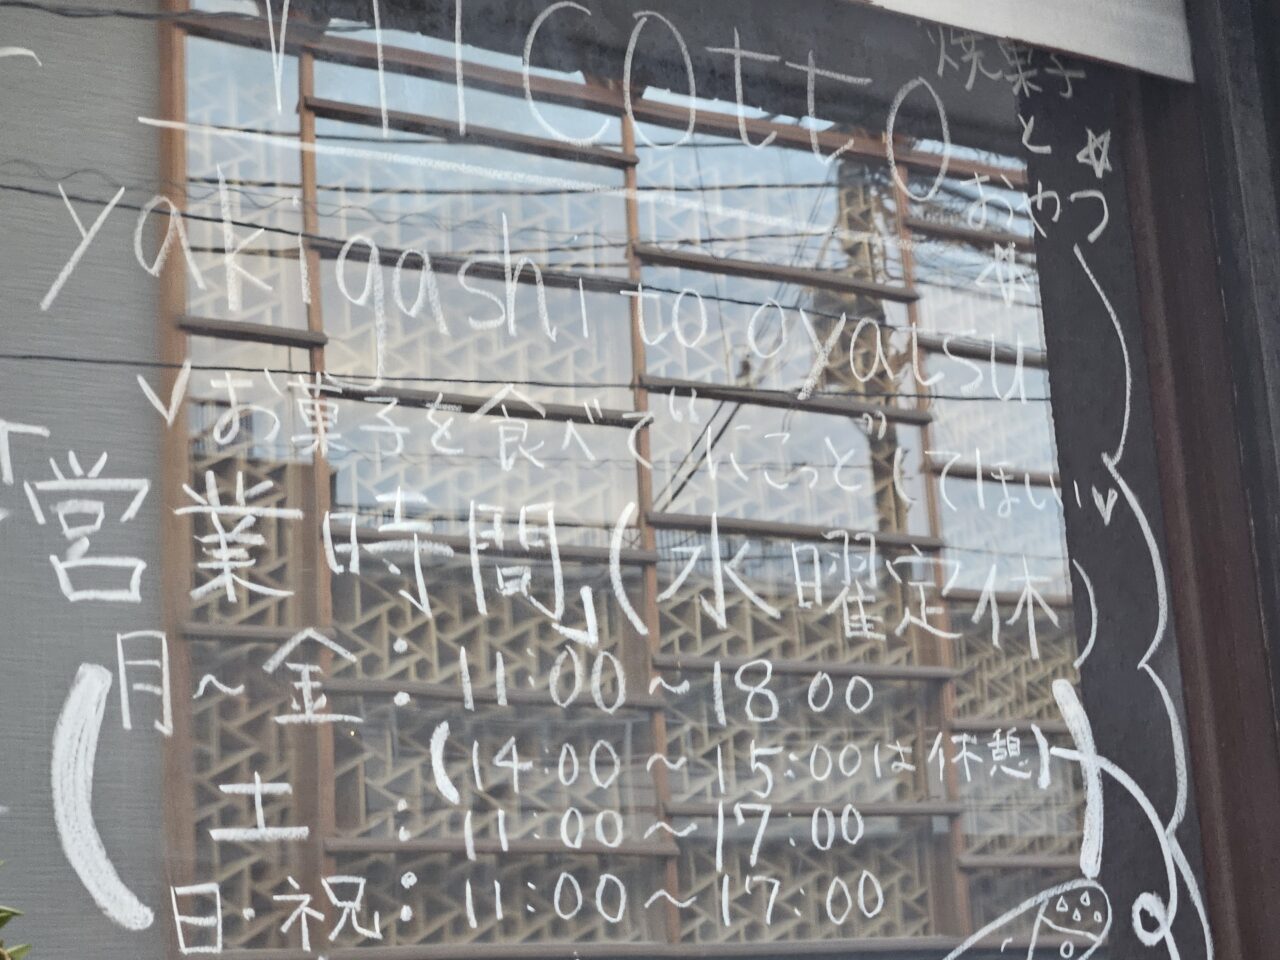 nicotto
焼菓子
と
おやつ
yakigashi to oyatsu
お菓子を食べて“にこっと”してほしい
営業時間(水曜定休)
月～金：11:00～18:00
(14:00～15:00は休憩)
土：11:00～17:00
日・祝：11:00～17:00